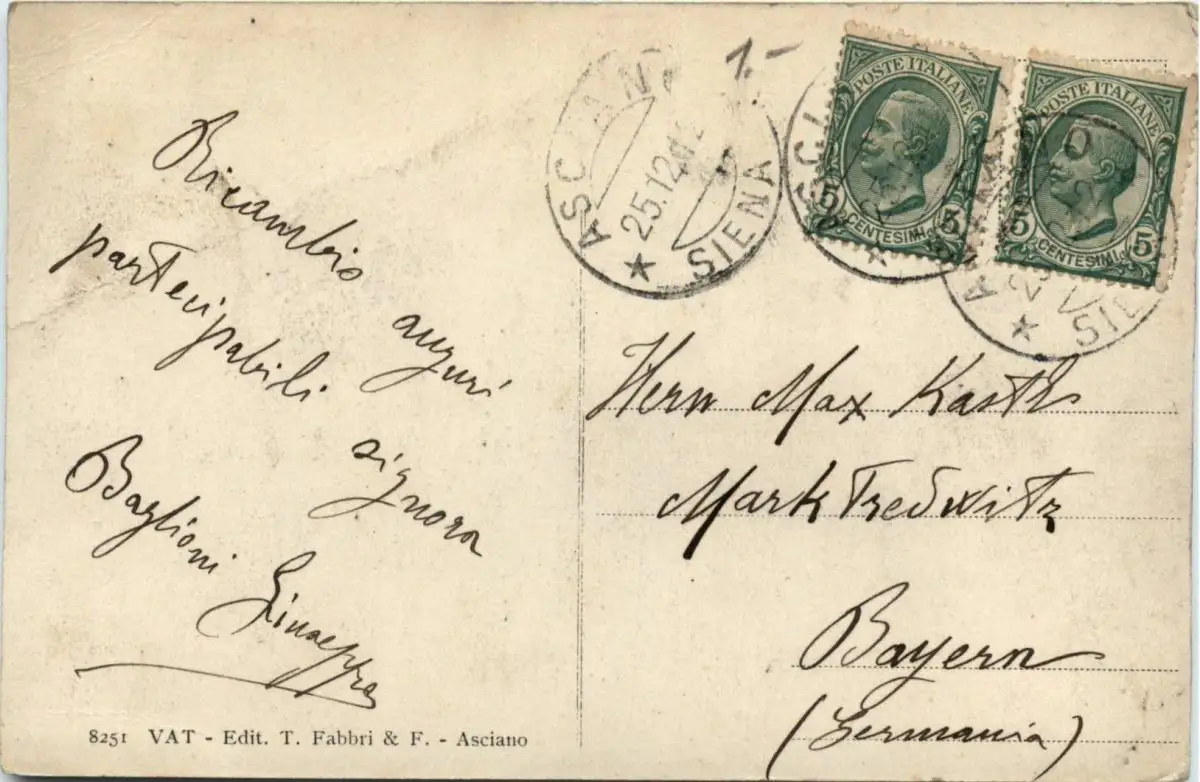 Ricambio auguri
partecipabili signora
Baglioni Giuseppa
8251 VAT - Edit. T. Fabbri & F. - Asciano
ASCIANO
25.12
SIENA
1.-
POSTE ITALIANE
5 CENTESIMI 5
POSTE ITALIANE
5 CENTESIMI 5
Herrn Max Kastl
Mark Tredwitz
Bayern
(Germania)